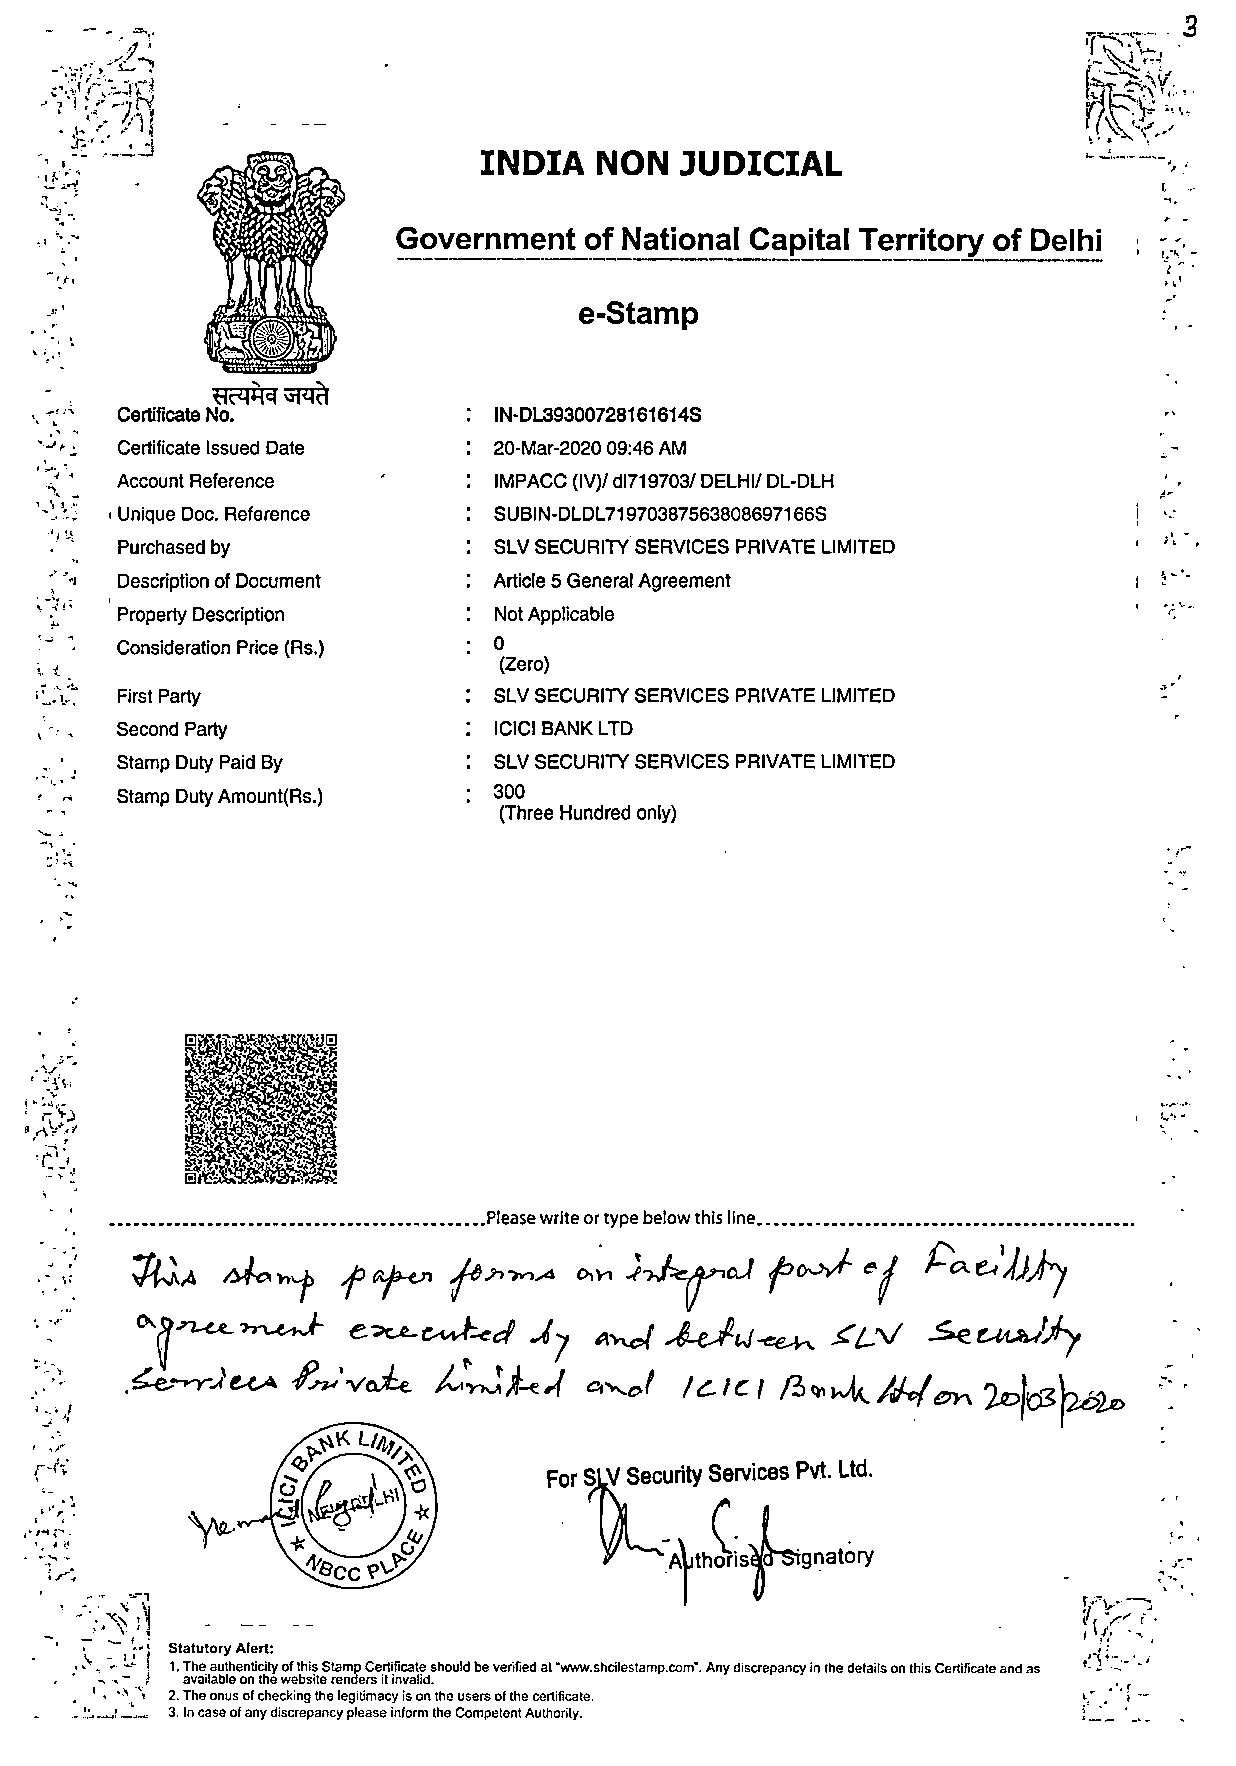 3
INDIA NON JUDICIAL
Government of National Capital Territory of Delhi
e-Stamp
सत्यमेव जयते
Certificate No. : IN-DL39300728161614S
Certificate Issued Date : 20-Mar-2020 09:46 AM
Account Reference : IMPACC (IV)/ dl719703/ DELHI/ DL-DLH
Unique Doc. Reference : SUBIN-DLDL71970387563808697166S
Purchased by : SLV SECURITY SERVICES PRIVATE LIMITED
Description of Document : Article 5 General Agreement
Property Description : Not Applicable
Consideration Price (Rs.) : 0
(Zero)
First Party : SLV SECURITY SERVICES PRIVATE LIMITED
Second Party : ICICI BANK LTD
Stamp Duty Paid By : SLV SECURITY SERVICES PRIVATE LIMITED
Stamp Duty Amount(Rs.) : 300
(Three Hundred only)
Please write or type below this line
This stamp paper forms an integral part of Facility
agreement executed by and between SLV Security
Services Private Limited and ICICI Bank Ltd on 20/03/2020
ICICI BANK LIMITED
NEW DELHI
NBCC PLACE
For SLV Security Services Pvt. Ltd.
Authorised Signatory
Statutory Alert:
1. The authenticity of this Stamp Certificate should be verified at "www.shcilestamp.com". Any discrepancy in the details on this Certificate and as
available on the website renders it invalid.
2. The onus of checking the legitimacy is on the users of the certificate.
3. In case of any discrepancy please inform the Competent Authority.